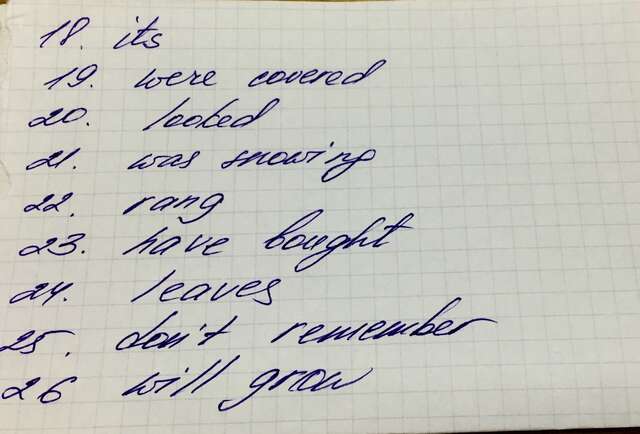 18. its
19. were covered
20. looked
21. was snowing
22. rang
23. have bought
24. leaves
25. don't remember
26 will grow